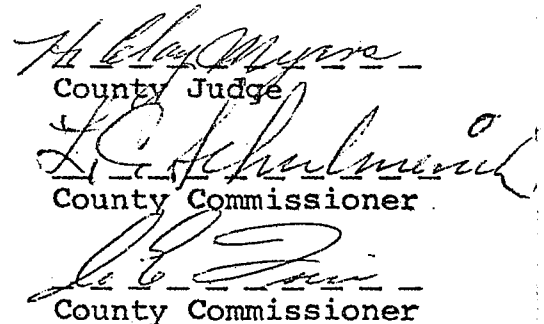 H Clay Myers
County Judge
L. C. Schulmerich
County Commissioner
County Commissioner